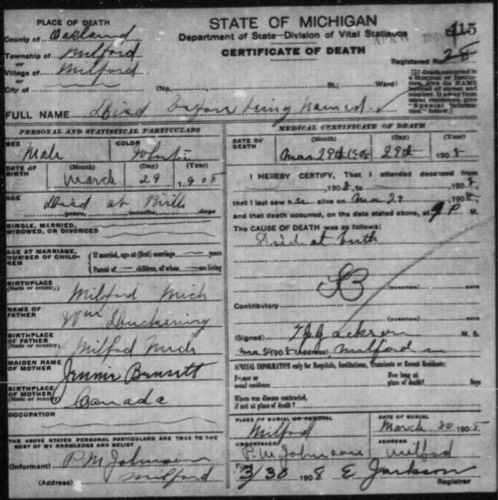 PLACE OF DEATH
County of Oakland
Township of Milford
Village of Milford
City of
STATE OF MICHIGAN
Department of State—Division of Vital Statistics
CERTIFICATE OF DEATH
415
Registered No. 28
(No. St.; Ward)
FULL NAME Died before being named.
PERSONAL AND STATISTICAL PARTICULARS
SEX Male
COLOR White
DATE OF BIRTH (Month) (Day) (Year)
March 29 1908
AGE Died at Birth
years, months, days
SINGLE, MARRIED, WIDOWED, OR DIVORCED
AGE AT MARRIAGE, NUMBER OF CHILDREN
If married, age at (first) marriage years
Parent of children, of whom are living
BIRTHPLACE (State or country) Milford Mich
NAME OF FATHER Wm
BIRTHPLACE OF FATHER (State or country) Milford Mich
MAIDEN NAME OF MOTHER Jennie
BIRTHPLACE OF MOTHER (State or country) Canada
OCCUPATION
THE ABOVE STATED PERSONAL PARTICULARS ARE TRUE TO THE BEST OF MY KNOWLEDGE AND BELIEF
(Informant) P. M. Johnson
(Address) Milford
MEDICAL CERTIFICATE OF DEATH
DATE OF DEATH (Month) (Day) (Year)
Mar 29th 1908 29th 1908
I HEREBY CERTIFY, That I attended deceased from
190 8, to 190 8.
that I last saw h alive on Ma 29 190 8,
and that death occurred, on the date stated above, at 9 P M.
The CAUSE OF DEATH was as follows:
Died at birth
SB
(DURATION) DAYS
Contributory
(DURATION) DAYS
(Signed) Jackson M. D.
190 8 (Address) Milford
SPECIAL INFORMATION only for Hospitals, Institutions, Transients or Recent Residents:
Former or usual residence
How long at place of death? Days
Where was disease contracted, if not at place of death?
PLACE OF BURIAL OR REMOVAL Milford
DATE OF BURIAL March 30 1908
UNDERTAKER P. M. Johnson
ADDRESS Milford
Filed 3/30 190 8 E Jackson
Registrar